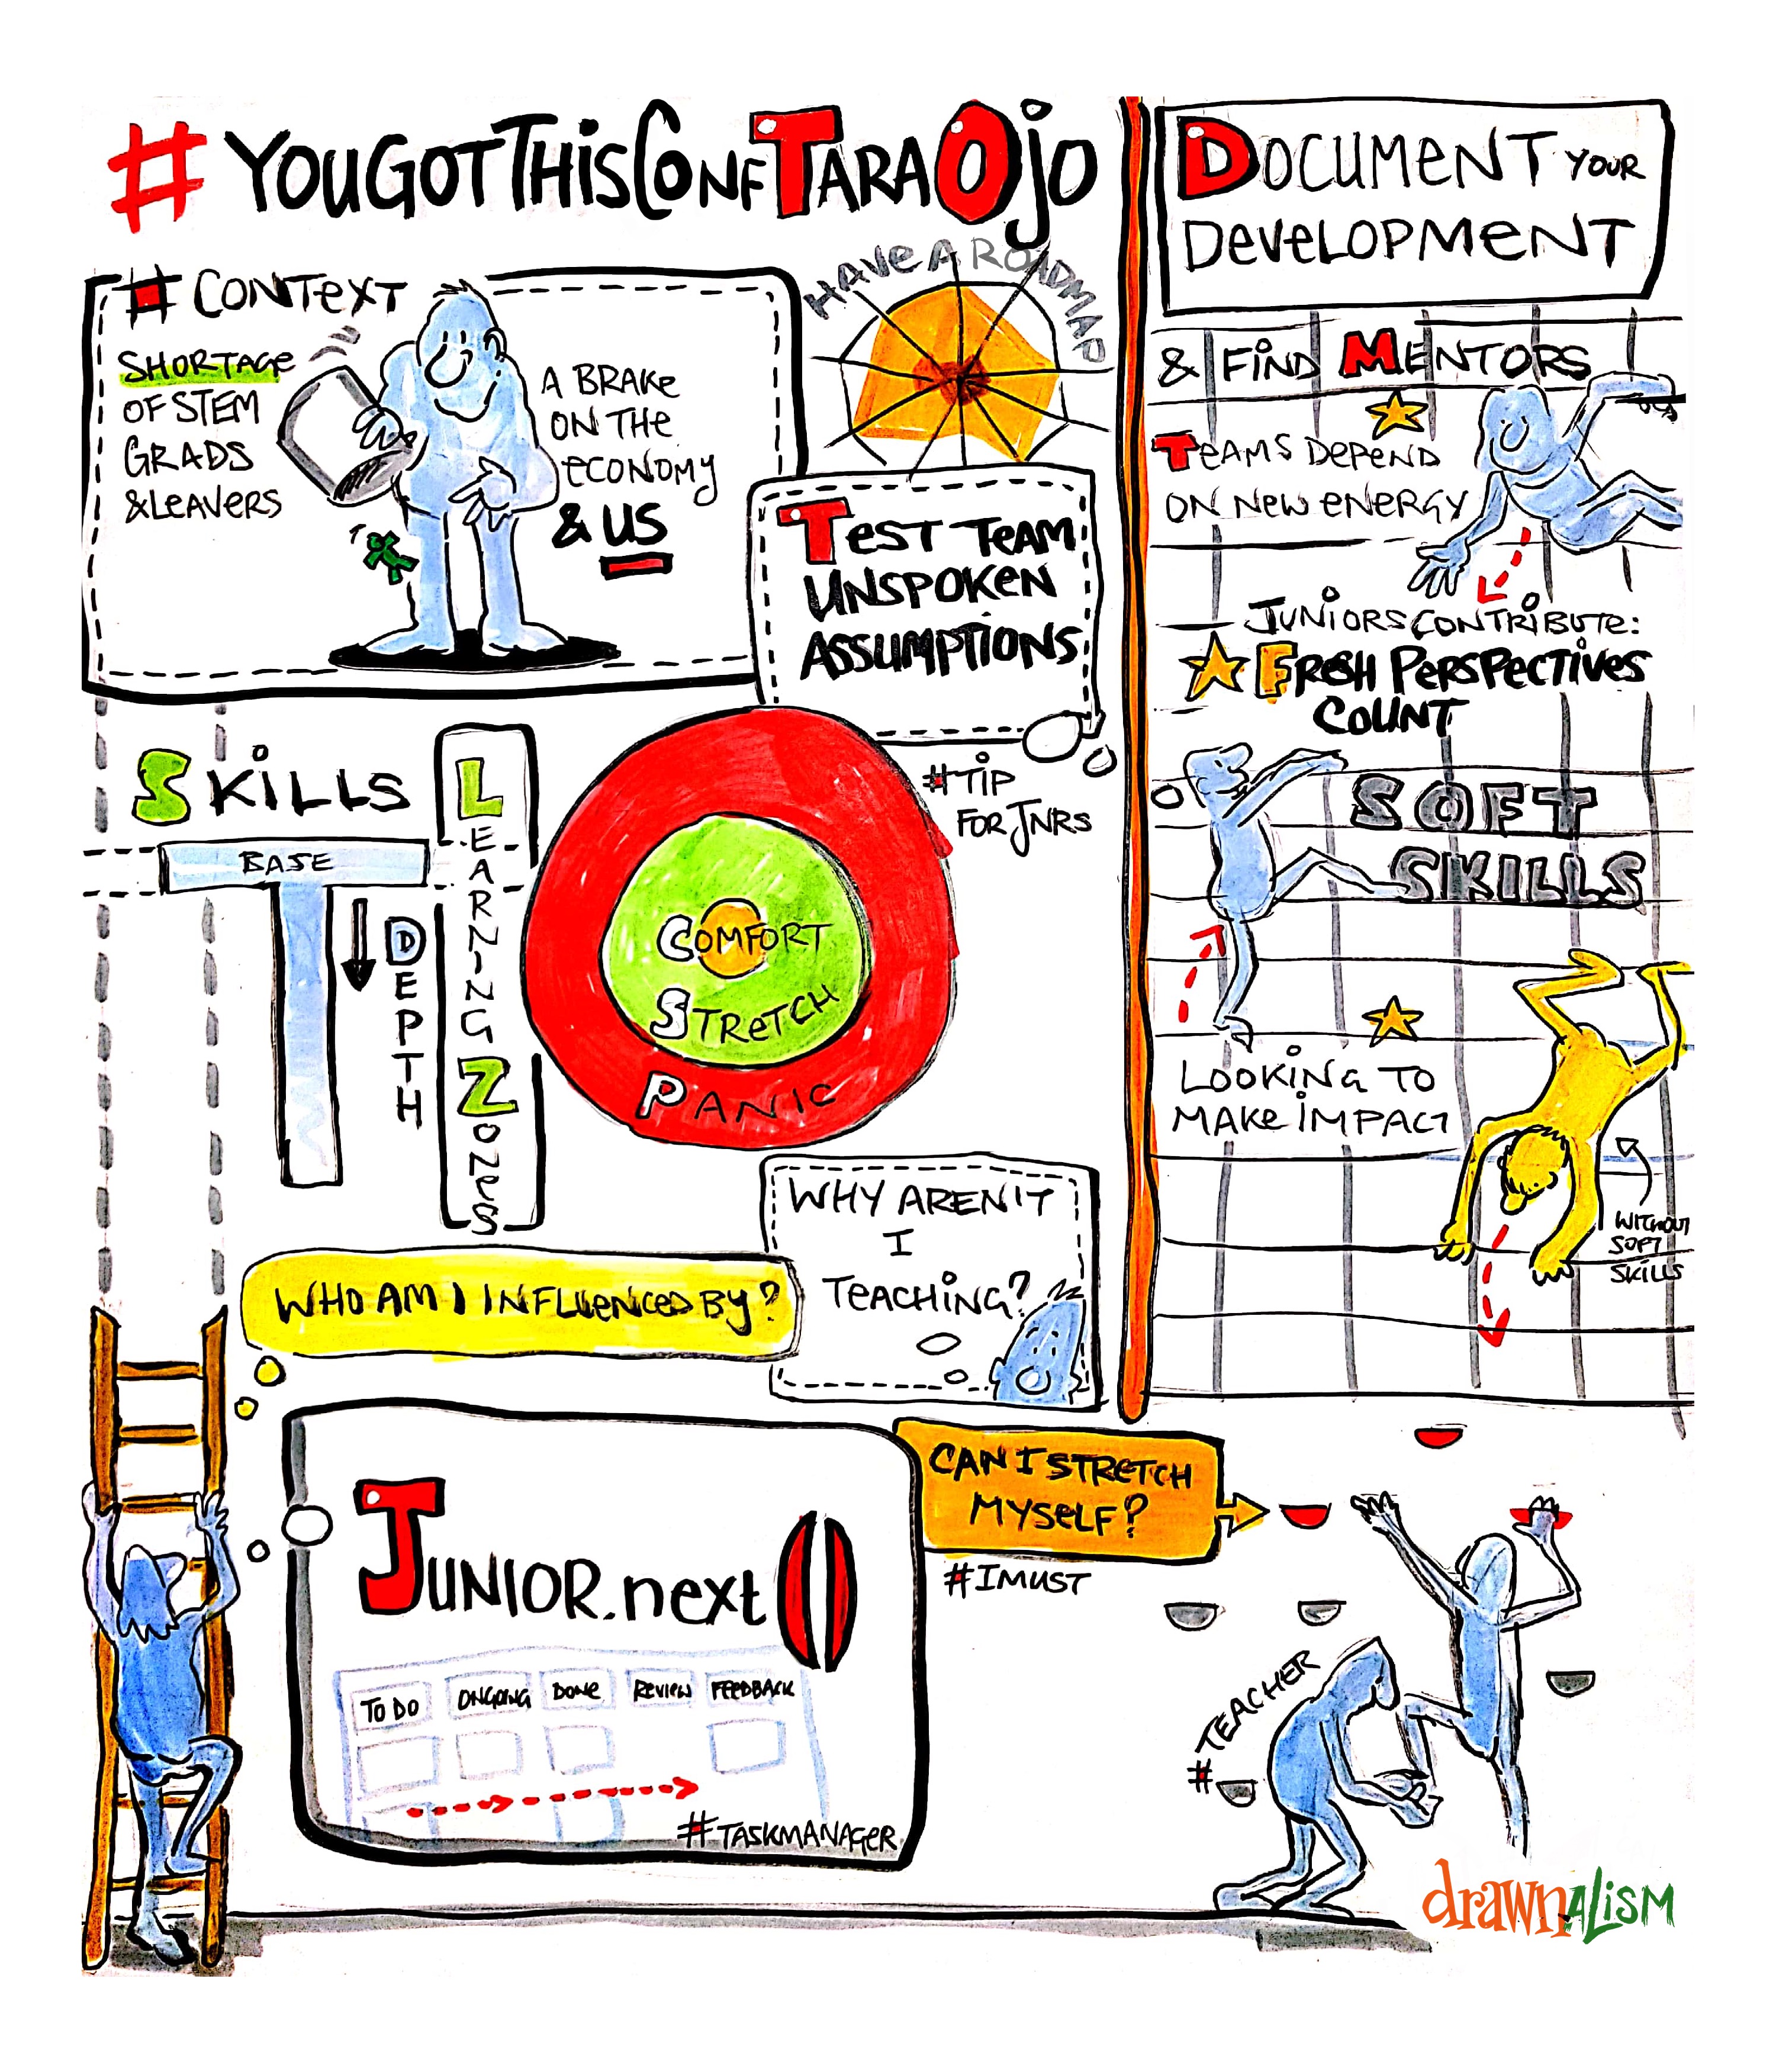 #YOUGOTTHISCONFTARAOJO
#CONTEXT
SHORTAGE
OF STEM
GRADS
&LEAVERS
A BRAKE
ON THE
ECONOMY
& US
HAVE A ROADMAP
TEST TEAM
UNSPOKEN
ASSUMPTIONS
#TIP
FOR JNRS
SKILLS
BASE
DEPTH
LEARNING ZONES
COMFORT
STRETCH
PANIC
WHO AM I INFLUENCED BY?
WHY AREN'T
I
TEACHING?
JUNIOR.next()
TO DO ONGOING DONE REVIEW FEEDBACK
#TASKMANAGER
CAN I STRETCH
MYSELF?
#IMUST
#TEACHER
DOCUMENT YOUR
DEVELOPMENT
& FIND MENTORS
TEAMS DEPEND
ON NEW ENERGY
JUNIORS CONTRIBUTE:
FRESH PERSPECTIVES
COUNT
SOFT
SKILLS
LOOKING TO
MAKE IMPACT
WITHOUT
SOFT
SKILLS
drawnALISM